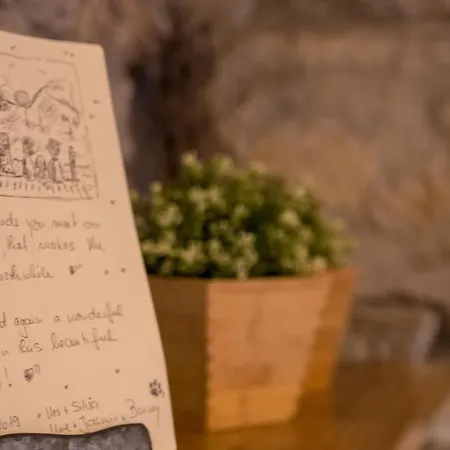 ds you met on
that makes the
worthwhile.
d again a wonderful
n this beautiful
!
2019 Urs + Silvia
Uwe + Jasmin + Benny